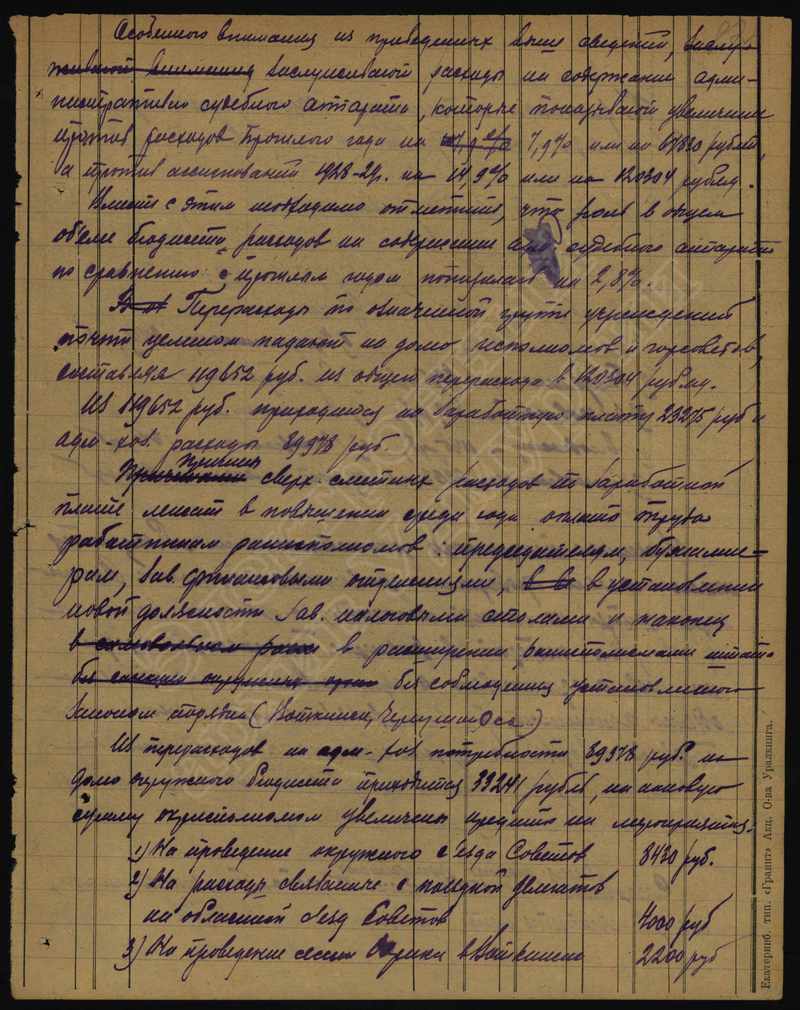 Особенного внимания из приведенных выше сведений, заслу-
живают внимания заслуживают расходы на содержание адми-
нистративно судебного аппарата, которые показывают увеличение
против расходов прошлого года на 7,9% или на рублей,
а против ассигнований 1928-29г. на 14,9% или на 120304 рубля.
Вместе с этим необходимо отметить, что роль в общем
объеме бюджета расходов на содержание адм. судебного аппарата
по сравнению с прошлым годом понизилась на 2,8%.
Перерасходы по означенной группе учреждений
почти целиком падают на долю исполкомов и горсоветов,
составляя 119652 руб. из общего перерасхода в 120304 рубля.
Из 119652 руб. приходится на заработную плату 23275 руб и
адм-хоз. расходы 89978 руб.
Причины сверх сметных расходов по заработной
плате лежат в повышении среди года оплаты труда
работникам райисполкомов: председателям, бухгалте-
рам, зав. финансовыми отделениями, в установлении
новой должности зав. налоговыми столами и наконец
в самовольном в расширении райисполкомами штата
без санкции окружных без соблюдения установленного
законом порядка (Воткинск, Чернушка Оса)
Из перерасходов на адм-хоз потребности 89978 руб. на
долю окружного бюджета приходится 33241 рубль, на каковую
сумму окрисполкомом увеличены кредиты на мероприятия:
1) На проведение окружного съезда Советов 8430 руб.
2) На расходы связанные с поездкой делегатов
на областной съезд Советов 4000 руб
3) На проведение сессии Окрика в Воткинске 2200 руб
Екатеринб. тип. «Гранит» Акц. О-ва Уралкнига.